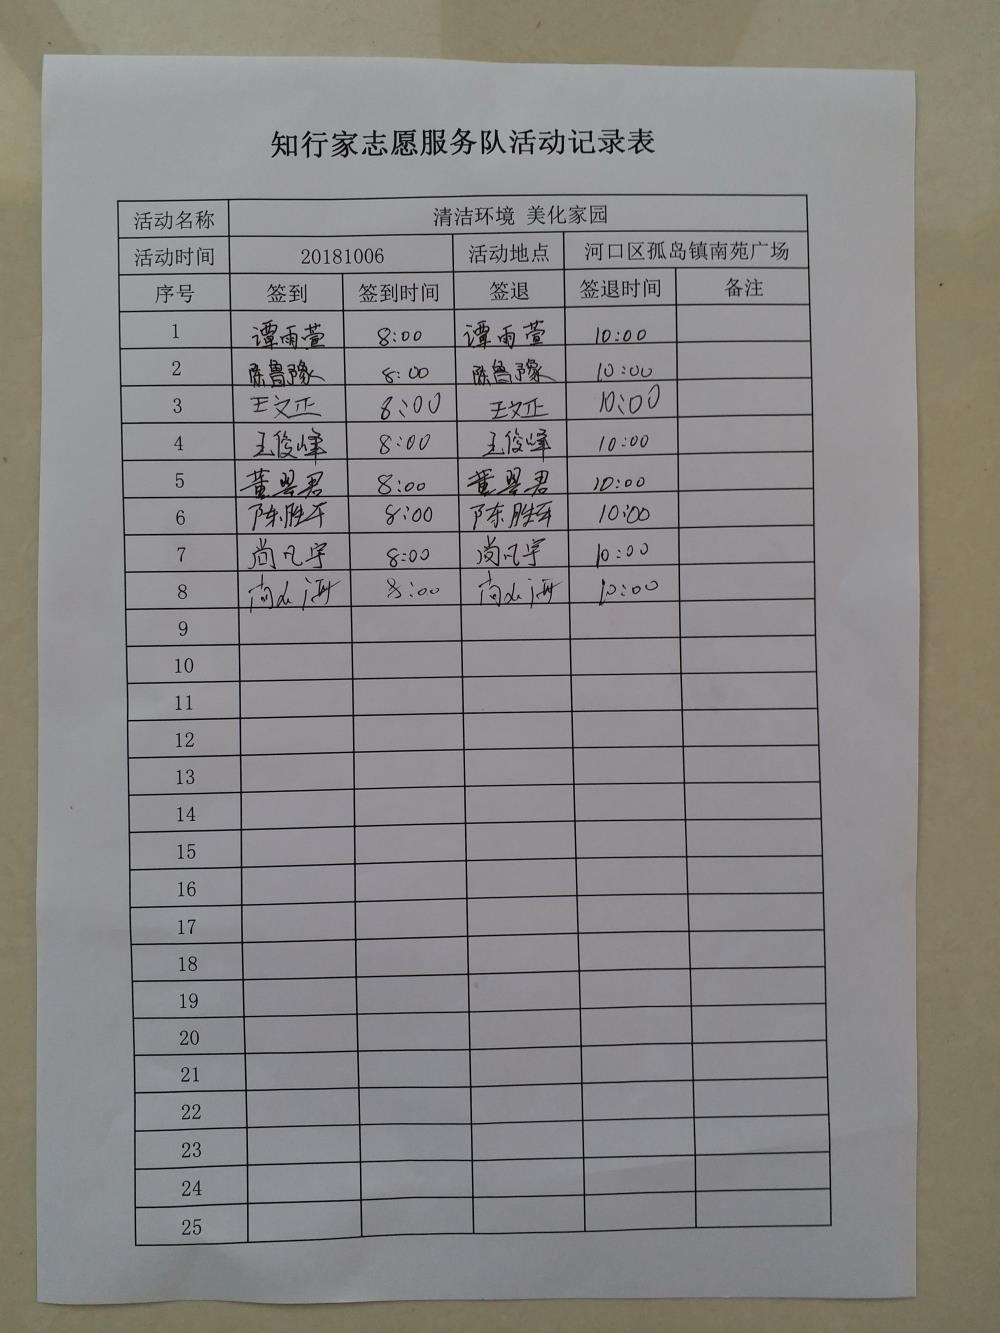 知行家志愿服务队活动记录表
活动名称 清洁环境 美化家园
活动时间 20181006 活动地点 河口区孤岛镇南苑广场
序号 签到 签到时间 签退 签退时间 备注
1 谭雨萱 8:00 谭雨萱 10:00
2 陈鲁豫 8:00 陈鲁豫 10:00
3 王文正 8:00 王文正 10:00
4 王俊峰 8:00 王俊峰 10:00
5 董昱君 8:00 董昱君 10:00
6 陈胜军 8:00 陈胜军 10:00
7 尚凡宇 8:00 尚凡宇 10:00
8 8:00 10:00
9
10
11
12
13
14
15
16
17
18
19
20
21
22
23
24
25